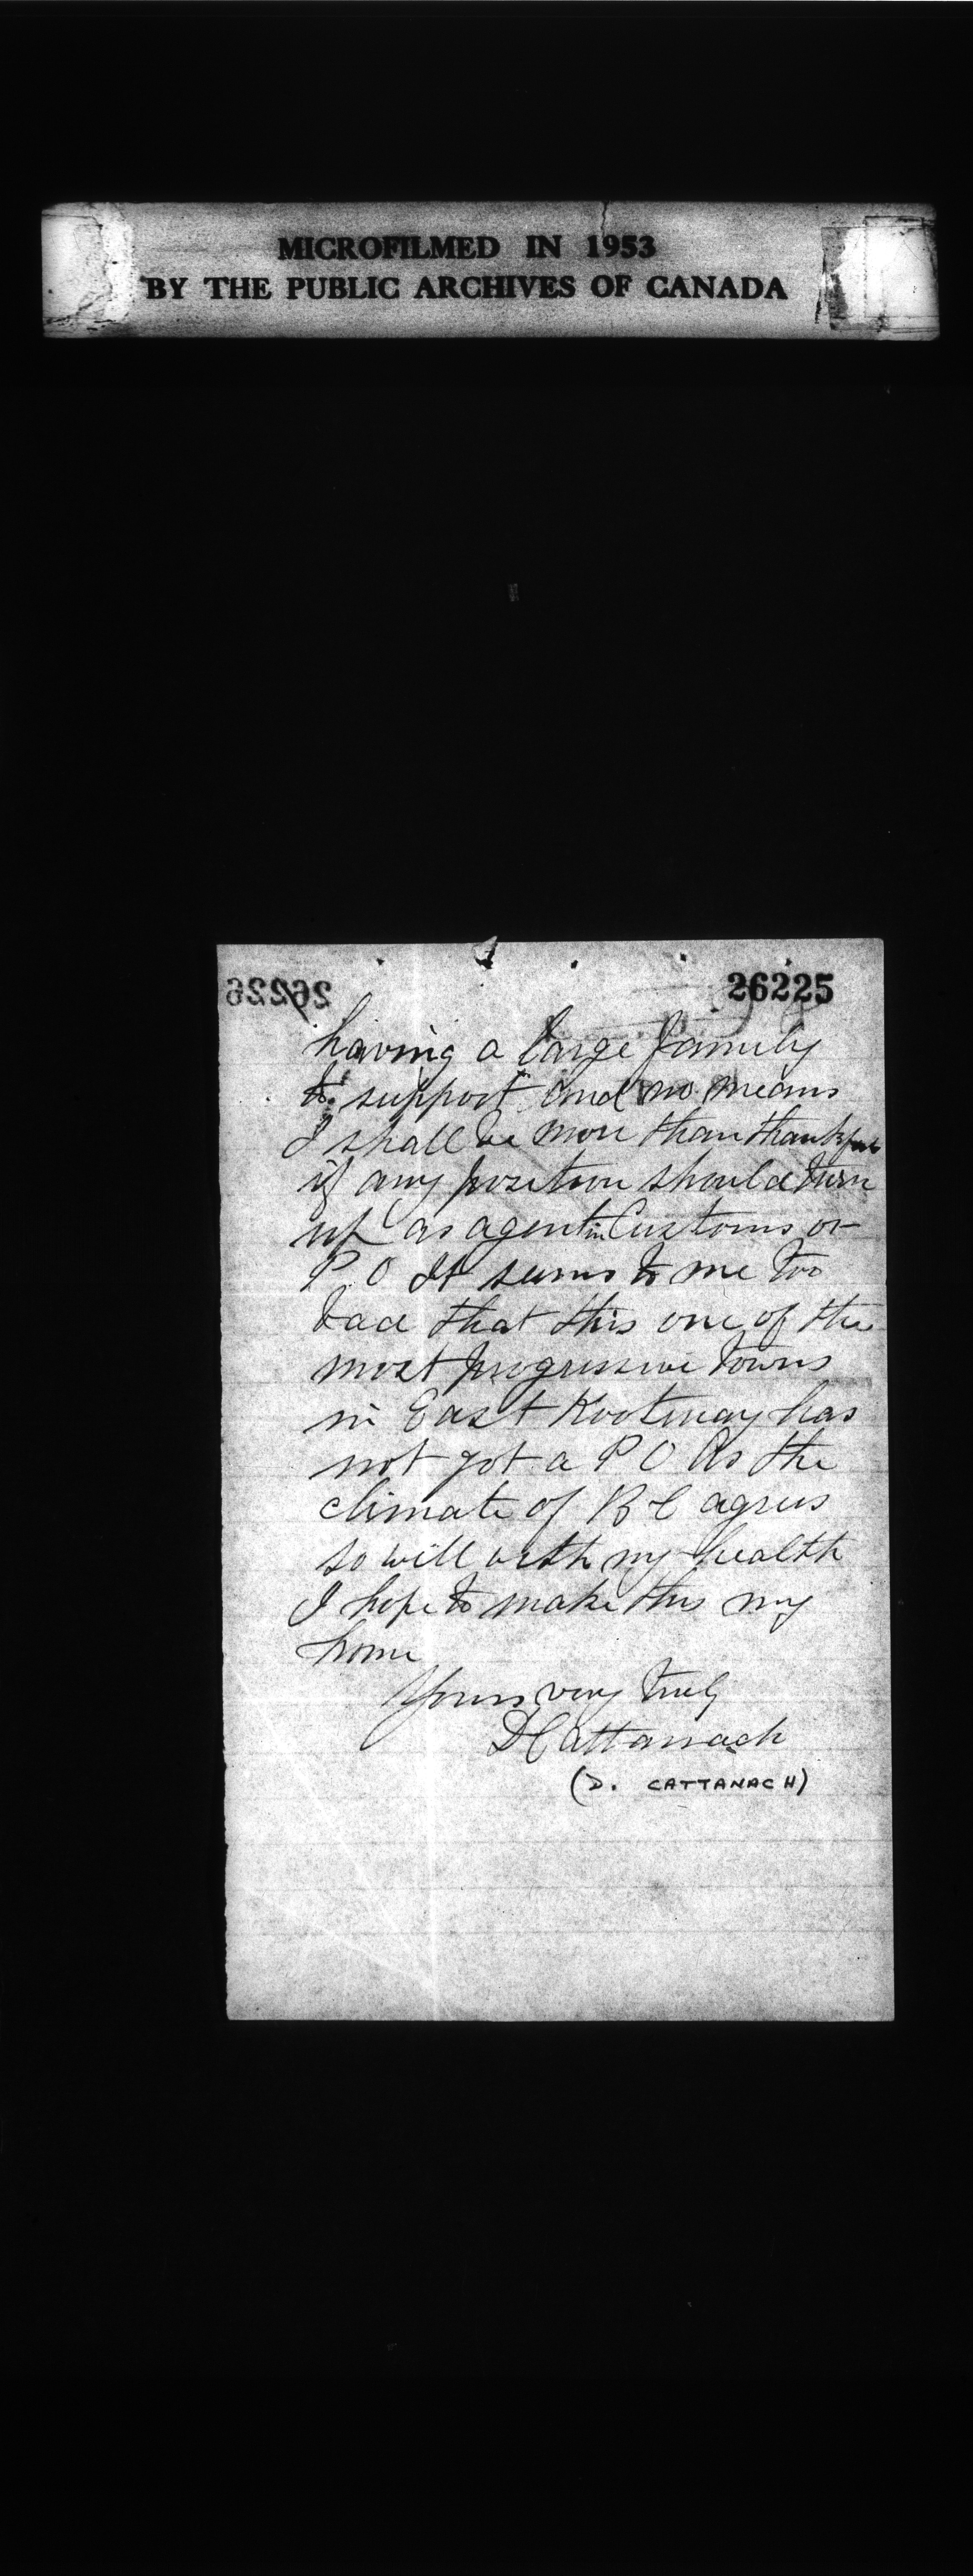 MICROFILMED IN 1953
BY THE PUBLIC ARCHIVES OF CANADA
26226
26225
having a large family
to support and no means
I shall be more than thankful
if any position should turn
up as agent in Customs or
P. O It seems to me too
bad that this one of the
most progressive towns
in East Kootenay has
not got a P O As the
climate of B C agrees
so well with my health
I hope to make this my
home
Yours very truly
D Cattanach
(D. CATTANACH)